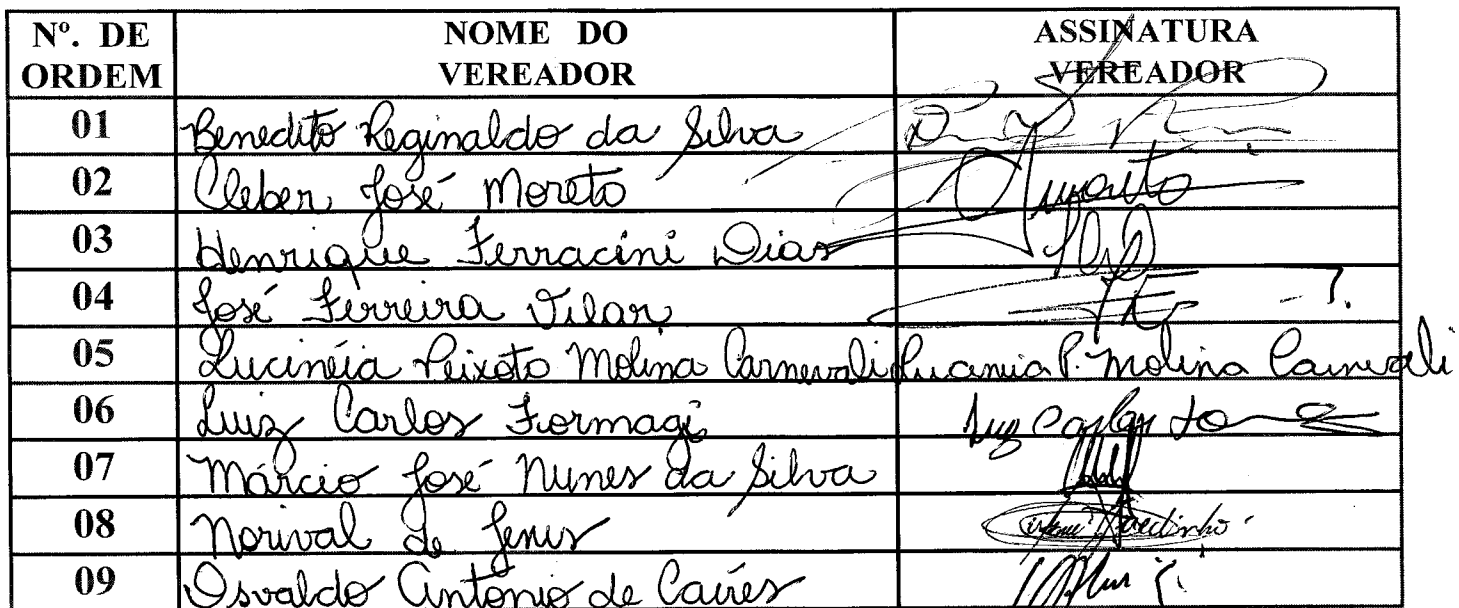 Nº. DE ORDEM NOME DO VEREADOR ASSINATURA VEREADOR
01 Benedito Reginaldo da Silva
02 Cleber José Moreto
03 Henrique Ferracini Dias
04 José Ferreira Vilar
05 Lucinéia Peixoto Molina Carnevali Lucineia P. Molina Carnevali
06 Luiz Carlos Formagi Luiz Carlos
07 Márcio José Nunes da Silva
08 Norival de Jesus
09 Osvaldo Antonio de Caires